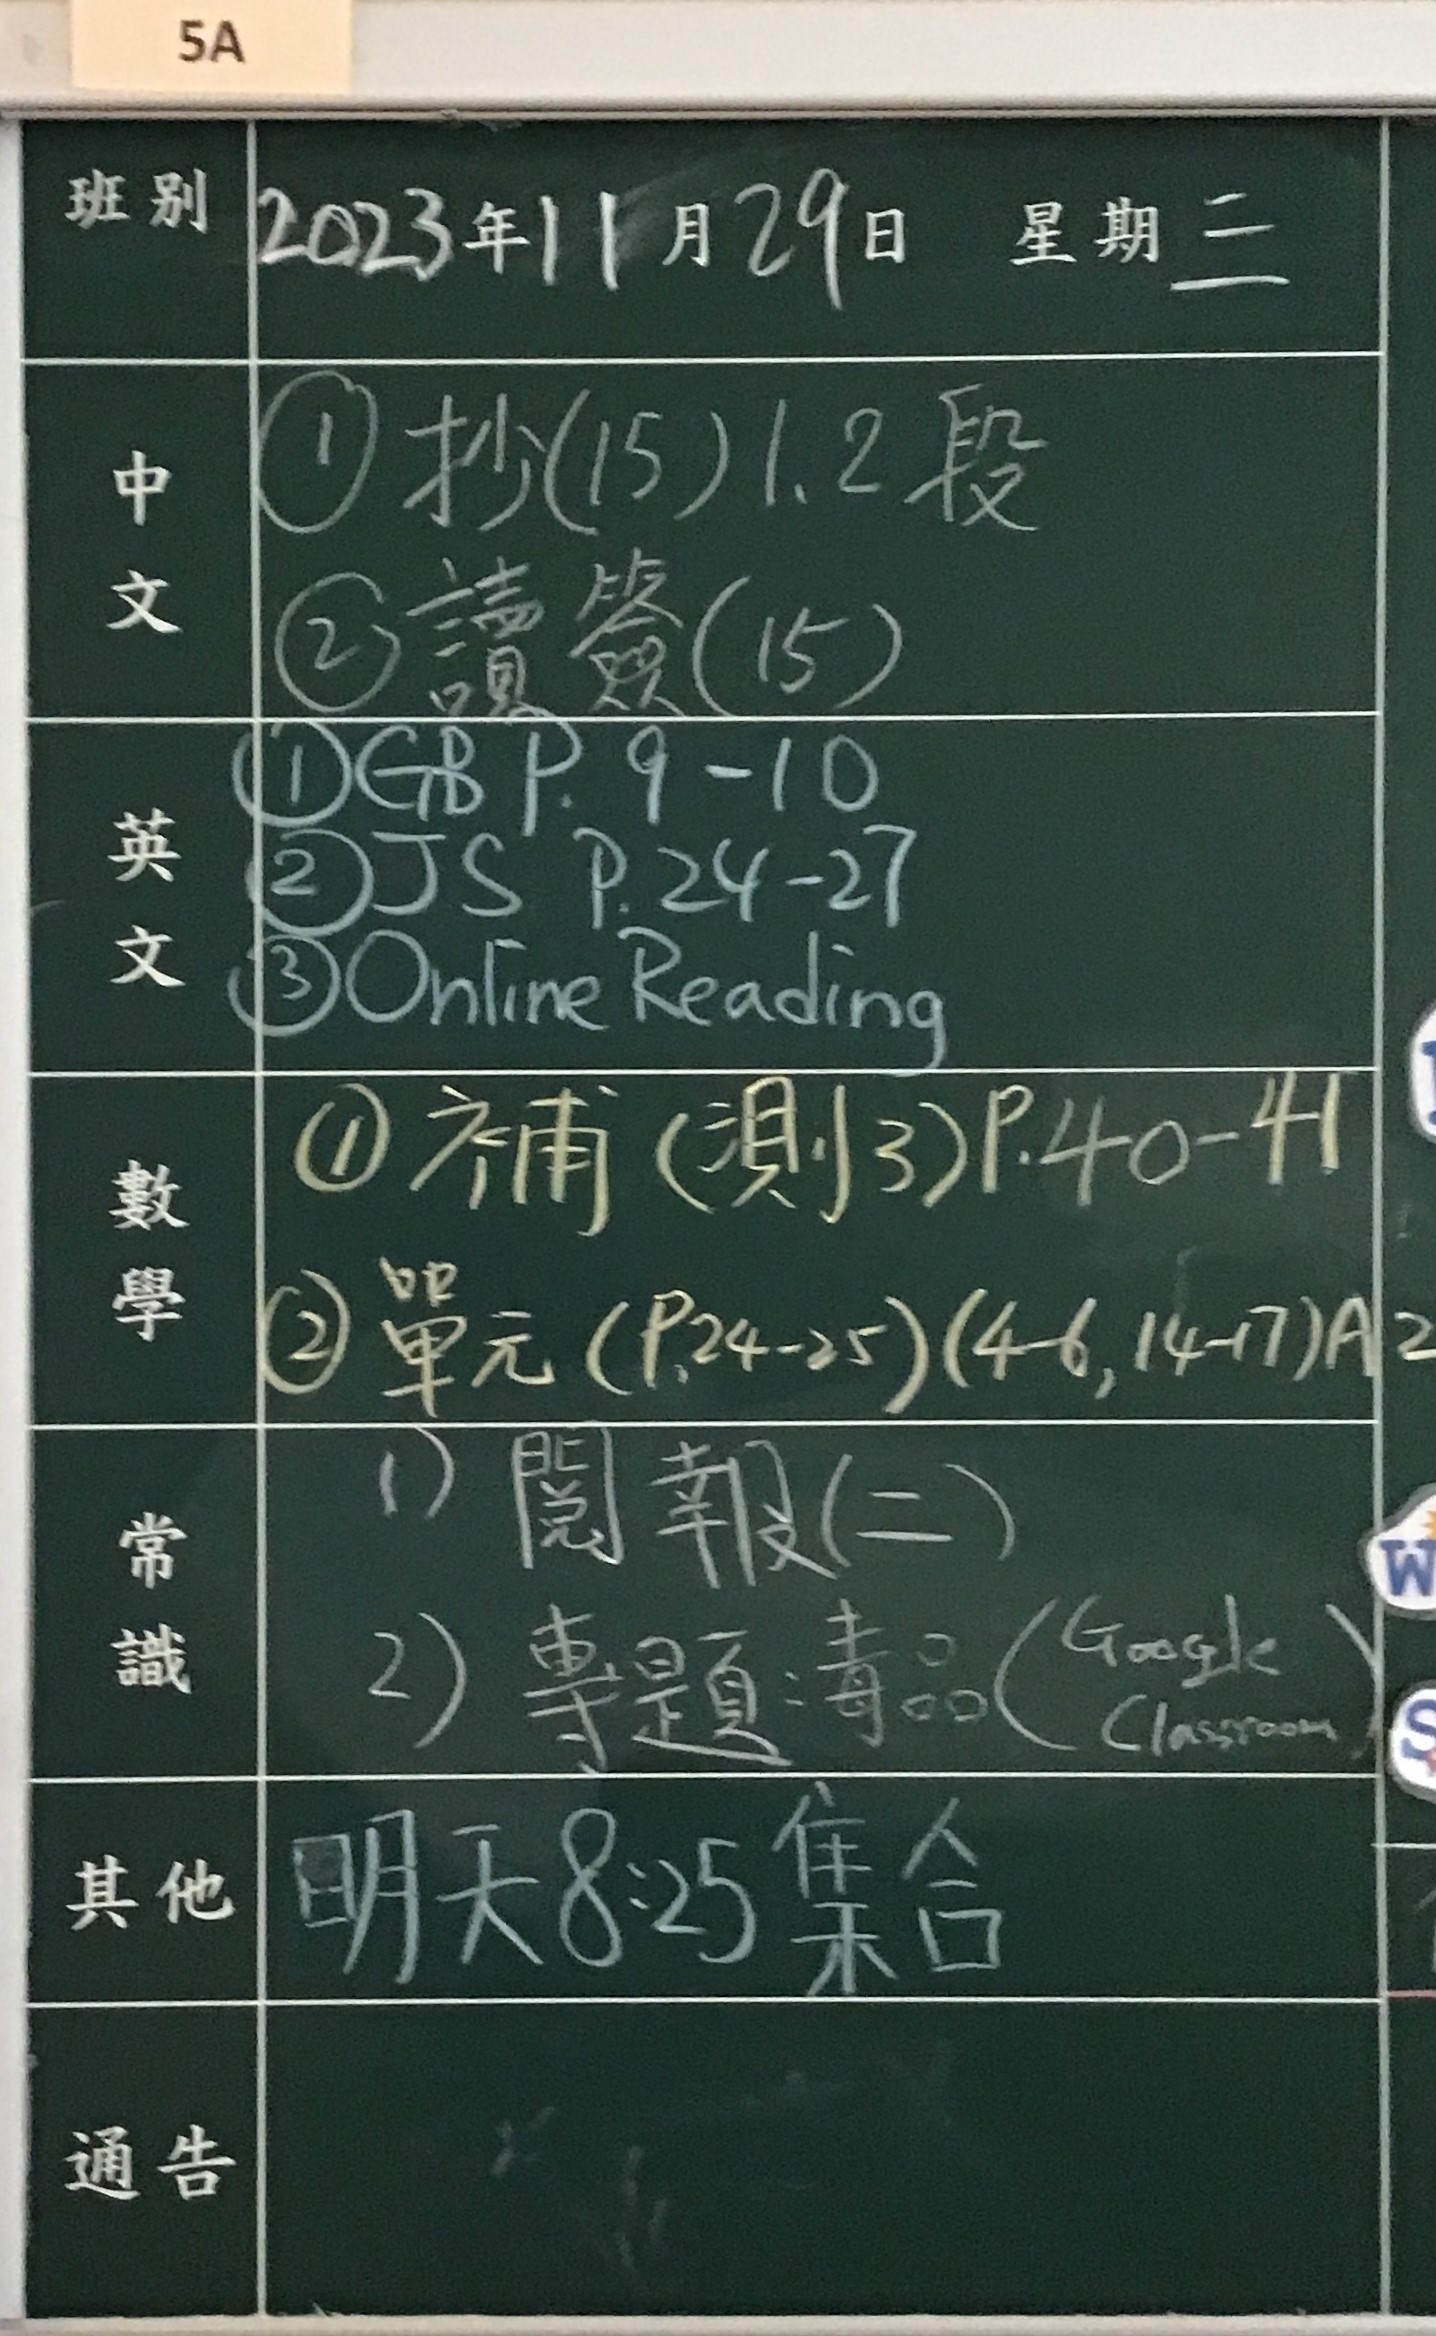 5A
班別 2023年11月29日 星期三
中文
①抄(15)1.2段
②讀簽(15)
英文
①GB P.9-10
②JS P.24-27
③Online Reading
數學
①補(測3)P.40-41
②單元(P.24-25)(4-6,14-17)A2
常識
1)閱報(二)
2)專題:毒品(Google Classroom)
其他 明天8:25集合
通告
W
S